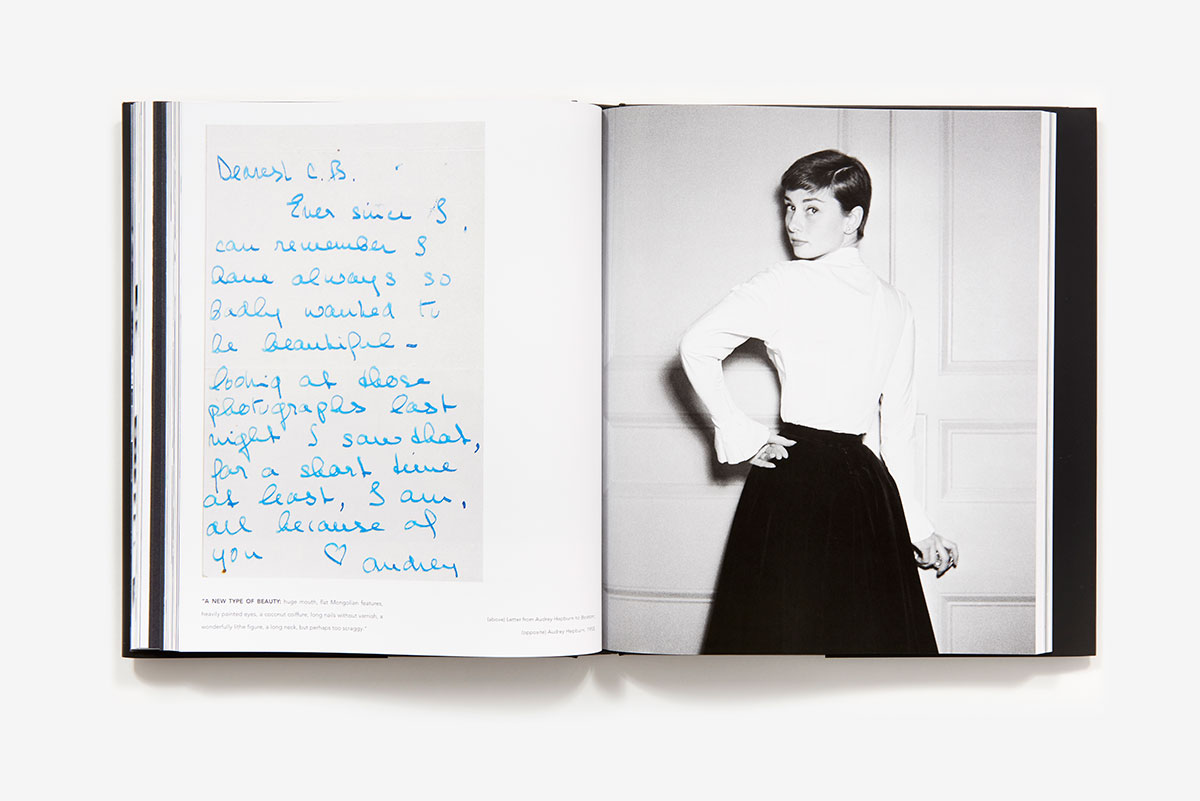 Dearest C.B.
Ever since I
can remember I
have always so
badly wanted to
be beautiful –
looking at those
photographs last
night I saw that,
for a short time
at least, I am,
all because of
you ♡ Audrey
"A NEW TYPE OF BEAUTY: huge mouth, flat Mongolian features,
heavily painted eyes, a coconut coiffure, long nails without varnish, a
wonderfully lithe figure, a long neck, but perhaps too scraggy."
(above) Letter from Audrey Hepburn to Beaton.
(opposite) Audrey Hepburn,